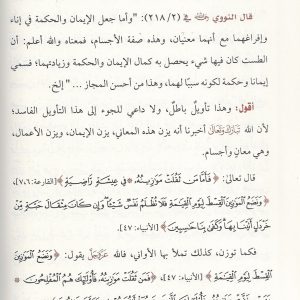 قال النووي رحمه الله في (٢/ ٢١٨): "وأما جعل الإيمان والحكمة في إناء
وإفراغهما مع أنهما معنيان، وهذه صفة الأجسام، فمعناه والله أعلم: أن
الطست كان فيها شيء يحصل به كمال الإيمان والحكمة وزيادتهما؛ فسمي
إيمانا وحكمة لكونه سببًا لهما، وهذا من أحسن المجاز ..." إلخ.
أقول: وهذا تأويلٌ باطلٌ، ولا داعي للجوء إلى هذا التأويل الفاسد؛
لأن الله تبارك وتعالى أخبرنا أنه يزن هذه المعاني، يزن الإيمان، ويزن الأعمال،
وهي معانٍ وأجسام.
قال تعالى: ﴿فَأَمَّا مَن ثَقُلَتْ مَوَازِينُهُ ۝ فَهُوَ فِي عِيشَةٍ رَّاضِيَةٍ﴾ [القارعة: ٦، ٧]،
﴿وَنَضَعُ الْمَوَازِينَ الْقِسْطَ لِيَوْمِ الْقِيَامَةِ فَلَا تُظْلَمُ نَفْسٌ شَيْئًا وَإِن كَانَ مِثْقَالَ حَبَّةٍ مِّنْ
خَرْدَلٍ أَتَيْنَا بِهَا وَكَفَى بِنَا حَاسِبِينَ﴾ [الأنبياء: ٤٧].
فكما توزن، كذلك تملأ بها الأواني، فالله عز وجل يقول: ﴿وَنَضَعُ الْمَوَازِينَ
الْقِسْطَ لِيَوْمِ الْقِيَامَةِ﴾ [الأنبياء: ٤٧]، ﴿فَمَن ثَقُلَتْ مَوَازِينُهُ فَأُولَئِكَ هُمُ الْمُفْلِحُونَ